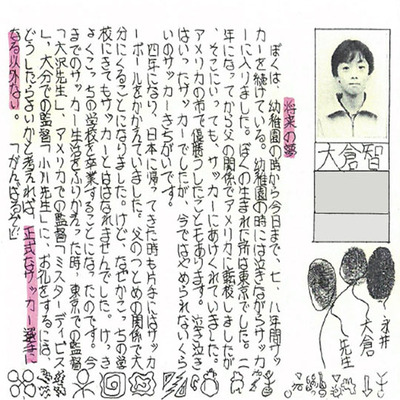 大倉智
永井
大倉
先生
将来の夢
ぼくは、幼稚園の時から今日まで、七、八年間サッ
カーを続けている。幼稚園の時には泣きながらサッカ
ーに入りました。ぼくの生まれた所は東京でした。二
年になってから父の関係でアメリカに転校しましたが
、そこにいっても、サッカーにあけくれていました。
アメリカの市で優勝したこともあります。泣き泣き
のサッカーでしたが、今ではやめられないくら
いのサッカーきちがいです。
四年になり、日本に帰ってきた時も片手にはサッカ
ーボールをかかえていました。父のつとめの関係で大
分にくることになりました。けど、なぜかこっちの学
校にきてもサッカーとははなれませんでした。けっき
ょくこっちの学校を卒業することになったのです。今
までのサッカー生活をふりかえった時、東京での監督
「大沢先生」、アメリカでの監督「ミスターディビス
」、大分での監督「小川先生」に、お礼をするには、
どうしたらよいかと考えれば、正式なサッカー選手に
なる以外ない。「がんばるぞ」